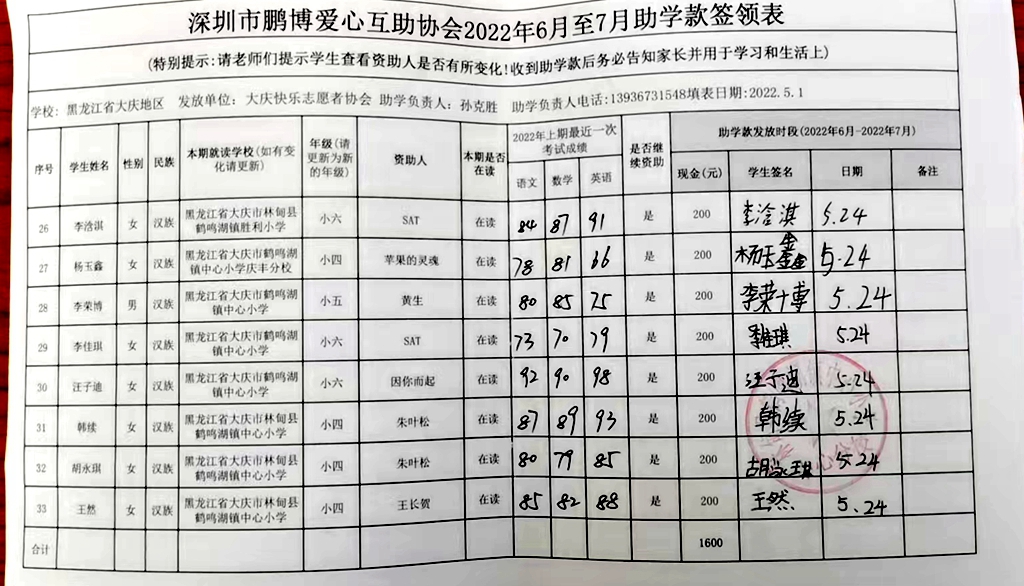 深圳市鹏博爱心互助协会2022年6月至7月助学款签领表
(特别提示:请老师们提示学生查看资助人是否有所变化!收到助学款后务必告知家长并用于学习和生活上)
学校: 黑龙江省大庆地区 发放单位: 大庆快乐志愿者协会 助学负责人: 孙克胜 助学负责人电话:13936731548填表日期:2022.5.1
序号 学生姓名 性别 民族 本期就读学校(如有变化请更新) 年级(请更新为新的年级) 资助人 本期是否在读 2022年上期最近一次考试成绩 是否继续资助 助学款发放时段(2022年6月-2022年7月)
语文 数学 英语 现金(元) 学生签名 日期 备注
26 李浛淇 女 汉族 黑龙江省大庆市林甸县鹤鸣湖镇胜利小学 小六 SAT 在读 84 87 91 是 200 李浛淇 5.24
27 杨玉鑫 女 汉族 黑龙江省大庆市鹤鸣湖镇中心小学庆丰分校 小四 苹果的灵魂 在读 78 81 66 是 200 杨玉鑫 5.24
28 李荣博 男 汉族 黑龙江省大庆市鹤鸣湖镇中心小学 小五 黄生 在读 80 85 75 是 200 李荣博 5.24
29 李佳琪 女 汉族 黑龙江省大庆市鹤鸣湖镇中心小学 小六 SAT 在读 73 70 79 是 200 李佳琪 5.24
30 汪子迪 女 汉族 黑龙江省大庆市鹤鸣湖镇中心小学 小六 因你而起 在读 92 90 98 是 200 汪子迪 5.24
31 韩续 女 汉族 黑龙江省大庆市林甸县鹤鸣湖镇中心小学 小四 朱叶松 在读 87 89 93 是 200 韩续 5.24
32 胡永琪 女 汉族 黑龙江省大庆市林甸县鹤鸣湖镇中心小学 小四 朱叶松 在读 80 79 85 是 200 胡永琪 5.24
33 王然 女 汉族 黑龙江省大庆市林甸县鹤鸣湖镇中心小学 小四 王长贺 在读 85 82 88 是 200 王然 5.24
合计 1600